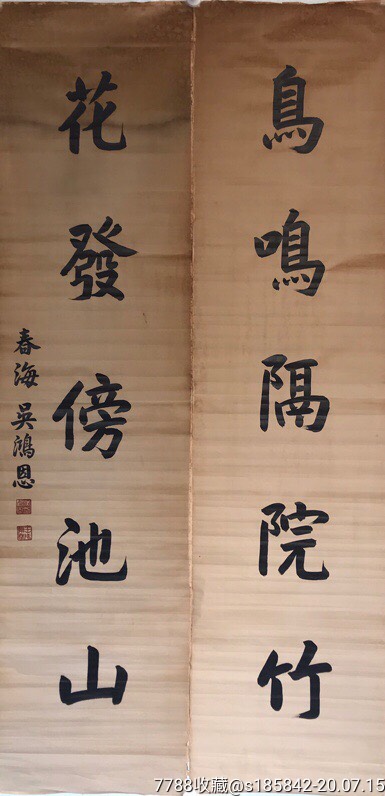 鳥鳴隔院竹
花發傍池山
春海 吳鴻恩
7788收藏@s185842-20.07.15